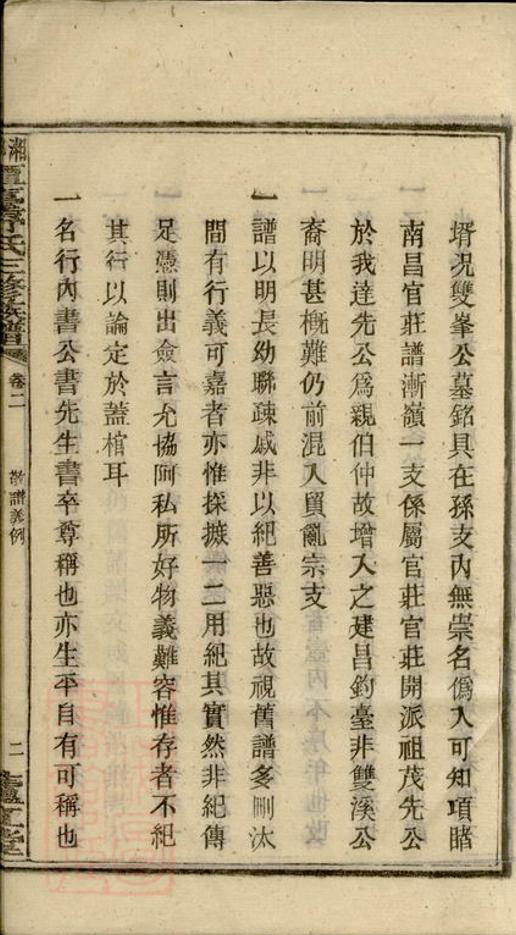 壻況雙峯公墓銘具在孫支內無崇名僞入可知項睹
南昌官莊譜漸嶺一支係屬官莊官莊開派祖茂先公
於我達先公爲親伯仲故增入之建昌釣臺非雙溪公
裔明甚概難仍前混入貿亂宗支
一譜以明長幼聯疎戚非以紀善惡也故視舊譜多刪汰
間有行義可嘉者亦惟採摭一二用紀其實然非紀傳
足憑則出僉言允協阿私所好物義難容惟存者不紀
其行以論定於蓋棺耳
一名行內書公書先生書卒尊稱也亦生平自有可稱也
氏三修族譜
卷二
譜義例
二